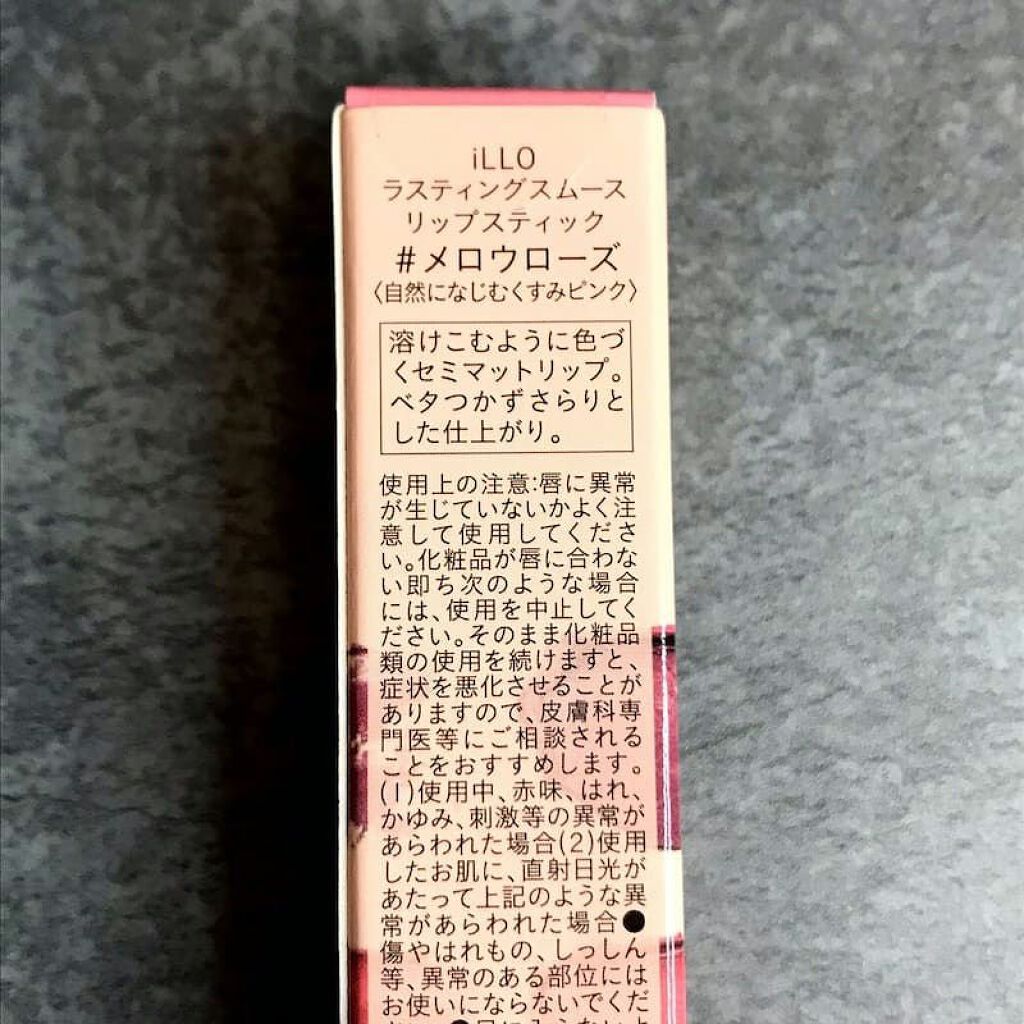 iLLO
ラスティングスムース
リップスティック
#メロウローズ
〈自然になじむくすみピンク〉
溶けこむように色づ
くセミマットリップ。
ベタつかずさらりと
した仕上がり。
使用上の注意:唇に異常
が生じていないかよく注
意して使用してくださ
い。化粧品が唇に合わな
い即ち次のような場合
には、使用を中止してく
ださい。そのまま化粧品
類の使用を続けますと、
症状を悪化させることが
ありますので、皮膚科専
門医等にご相談される
ことをおすすめします。
(1)使用中、赤味、はれ、
かゆみ、刺激等の異常が
あらわれた場合(2)使用
したお肌に、直射日光が
あたって上記のような異
常があらわれた場合●
傷やはれもの、しっしん
等、異常のある部位には
お使いにならないでくだ